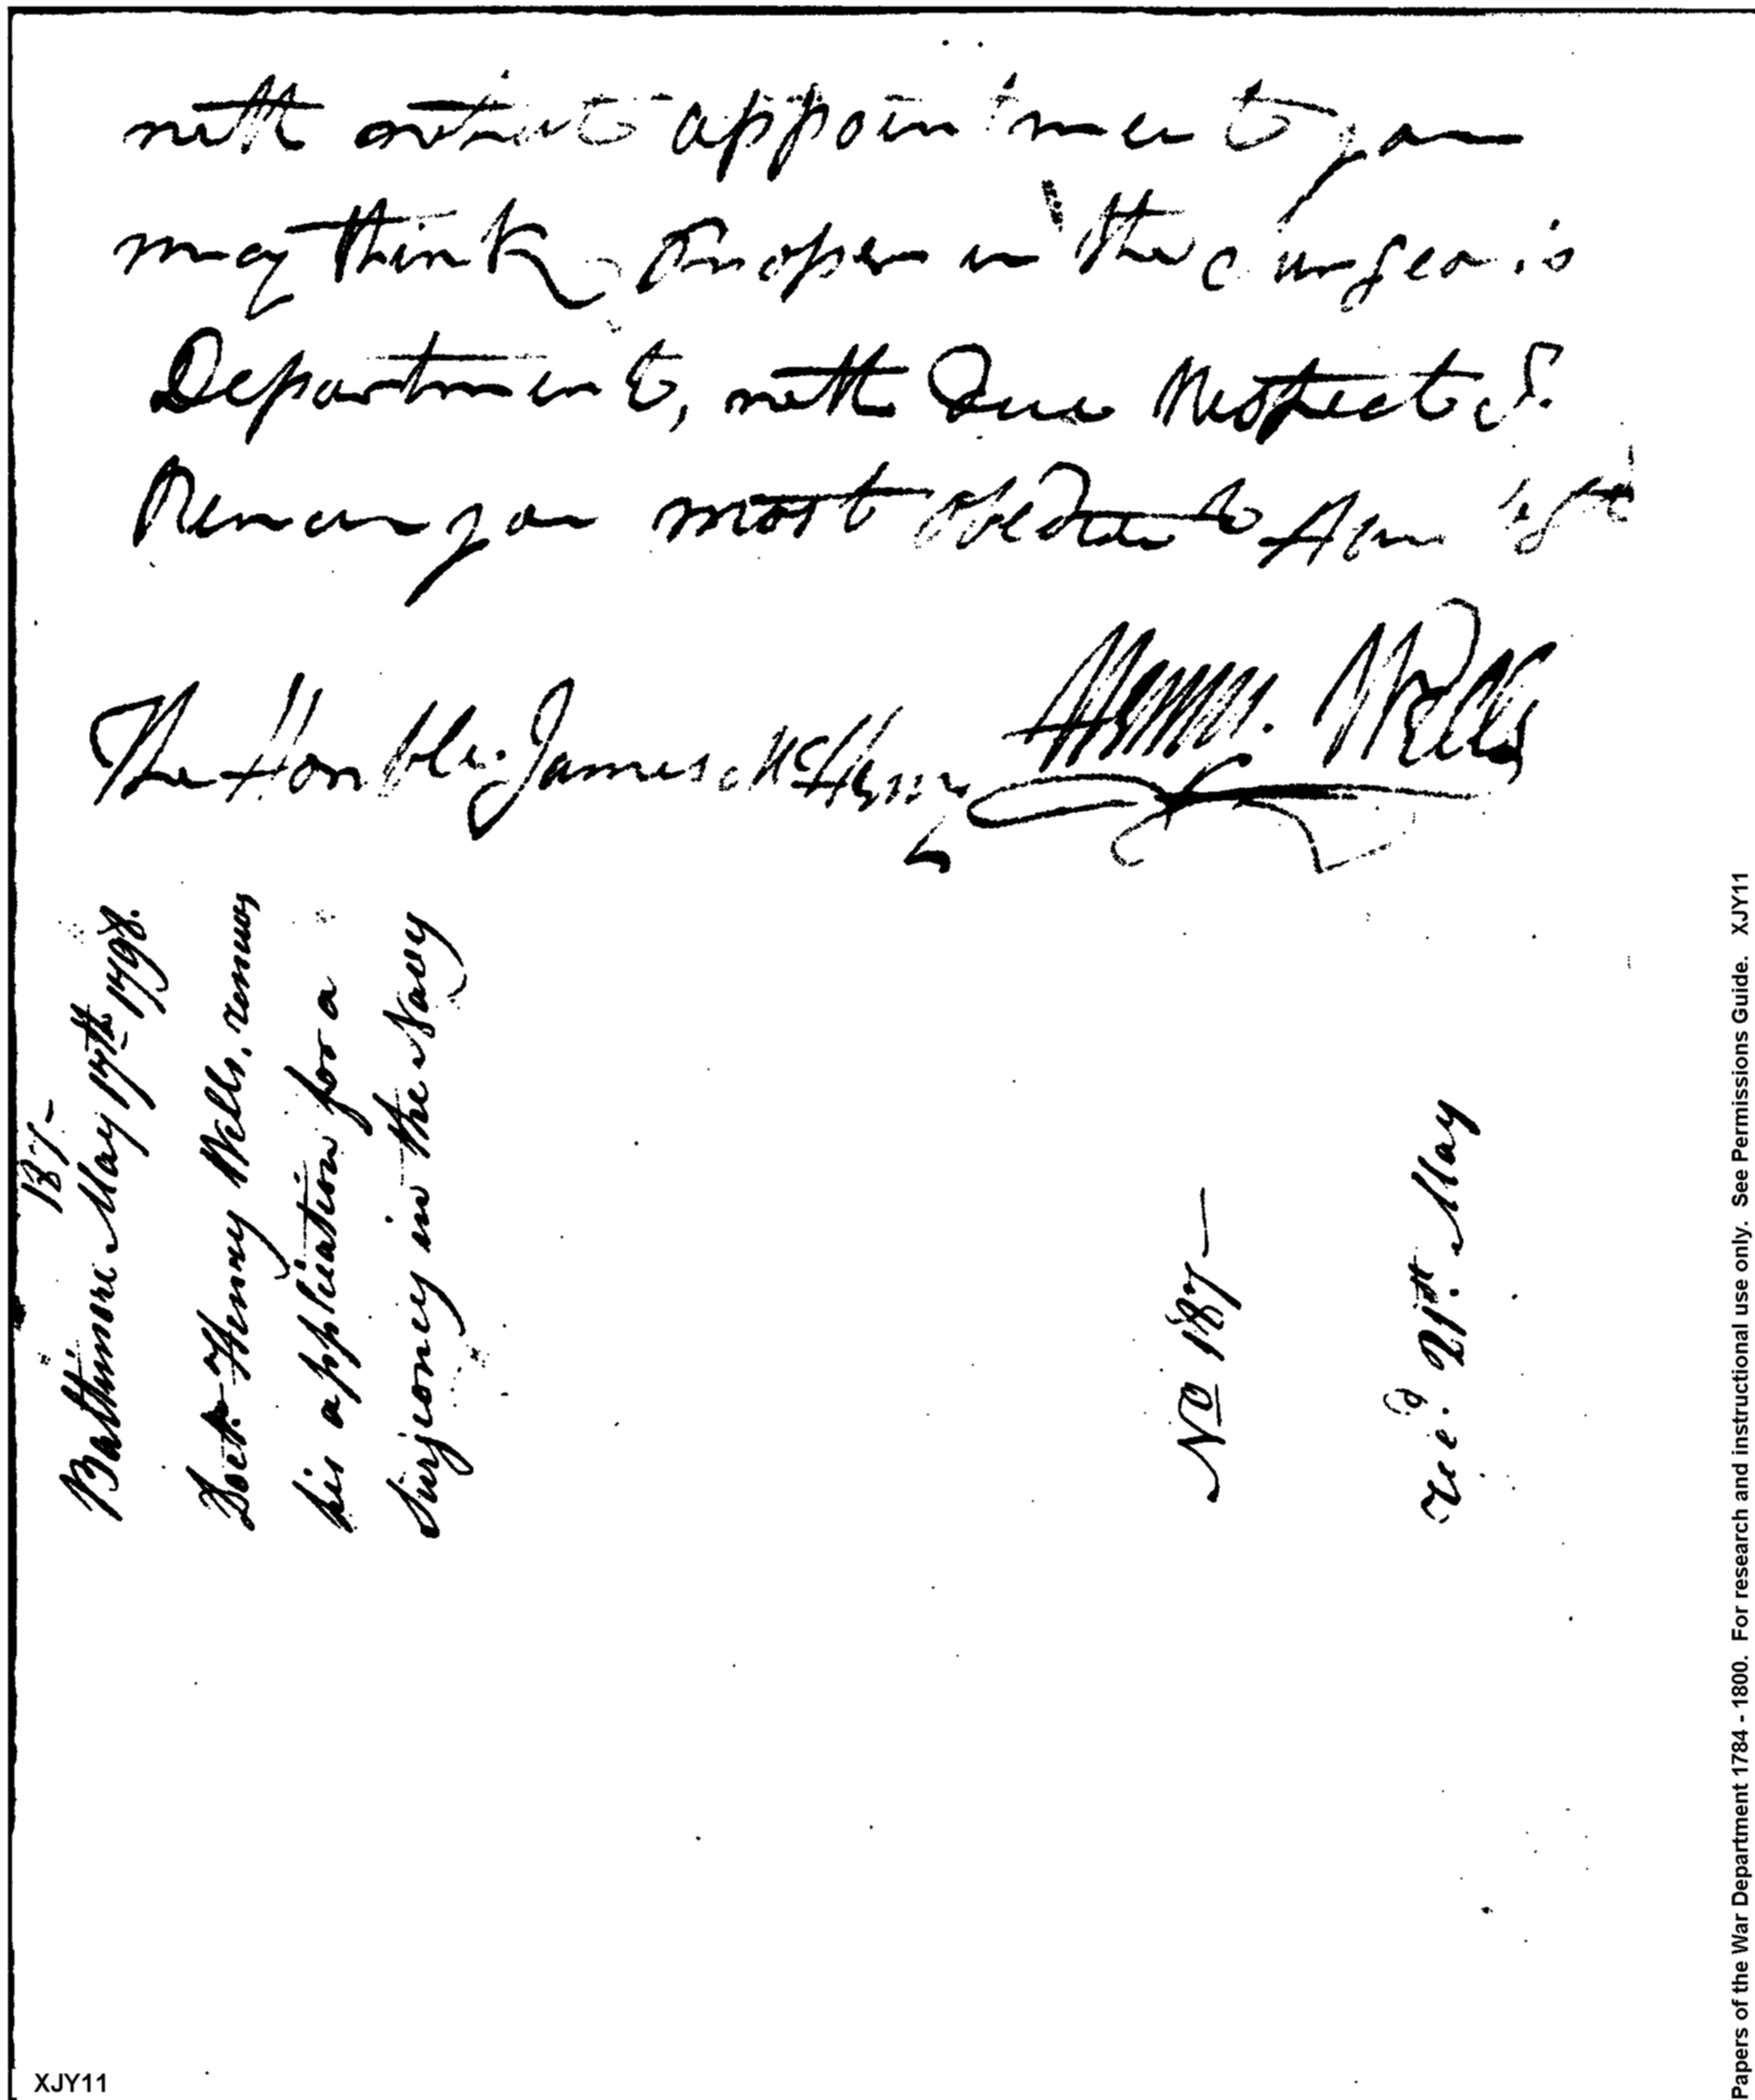 with appointment you
may think Proper in the Surgeons
Department, with Due Respect I.
Remain your most obedient Hum
Henry Wells
The Honble. James McHenry
187-
Baltimore May 17th 1798.
Doctr. Henry Wells. renews
his application for a
Surjeoncy in the Navy
No 187—
recd. 21st. May
Papers of the War Department 1784 - 1800. For research and instructional use only. See Permissions Guide. XJY11
XJY11